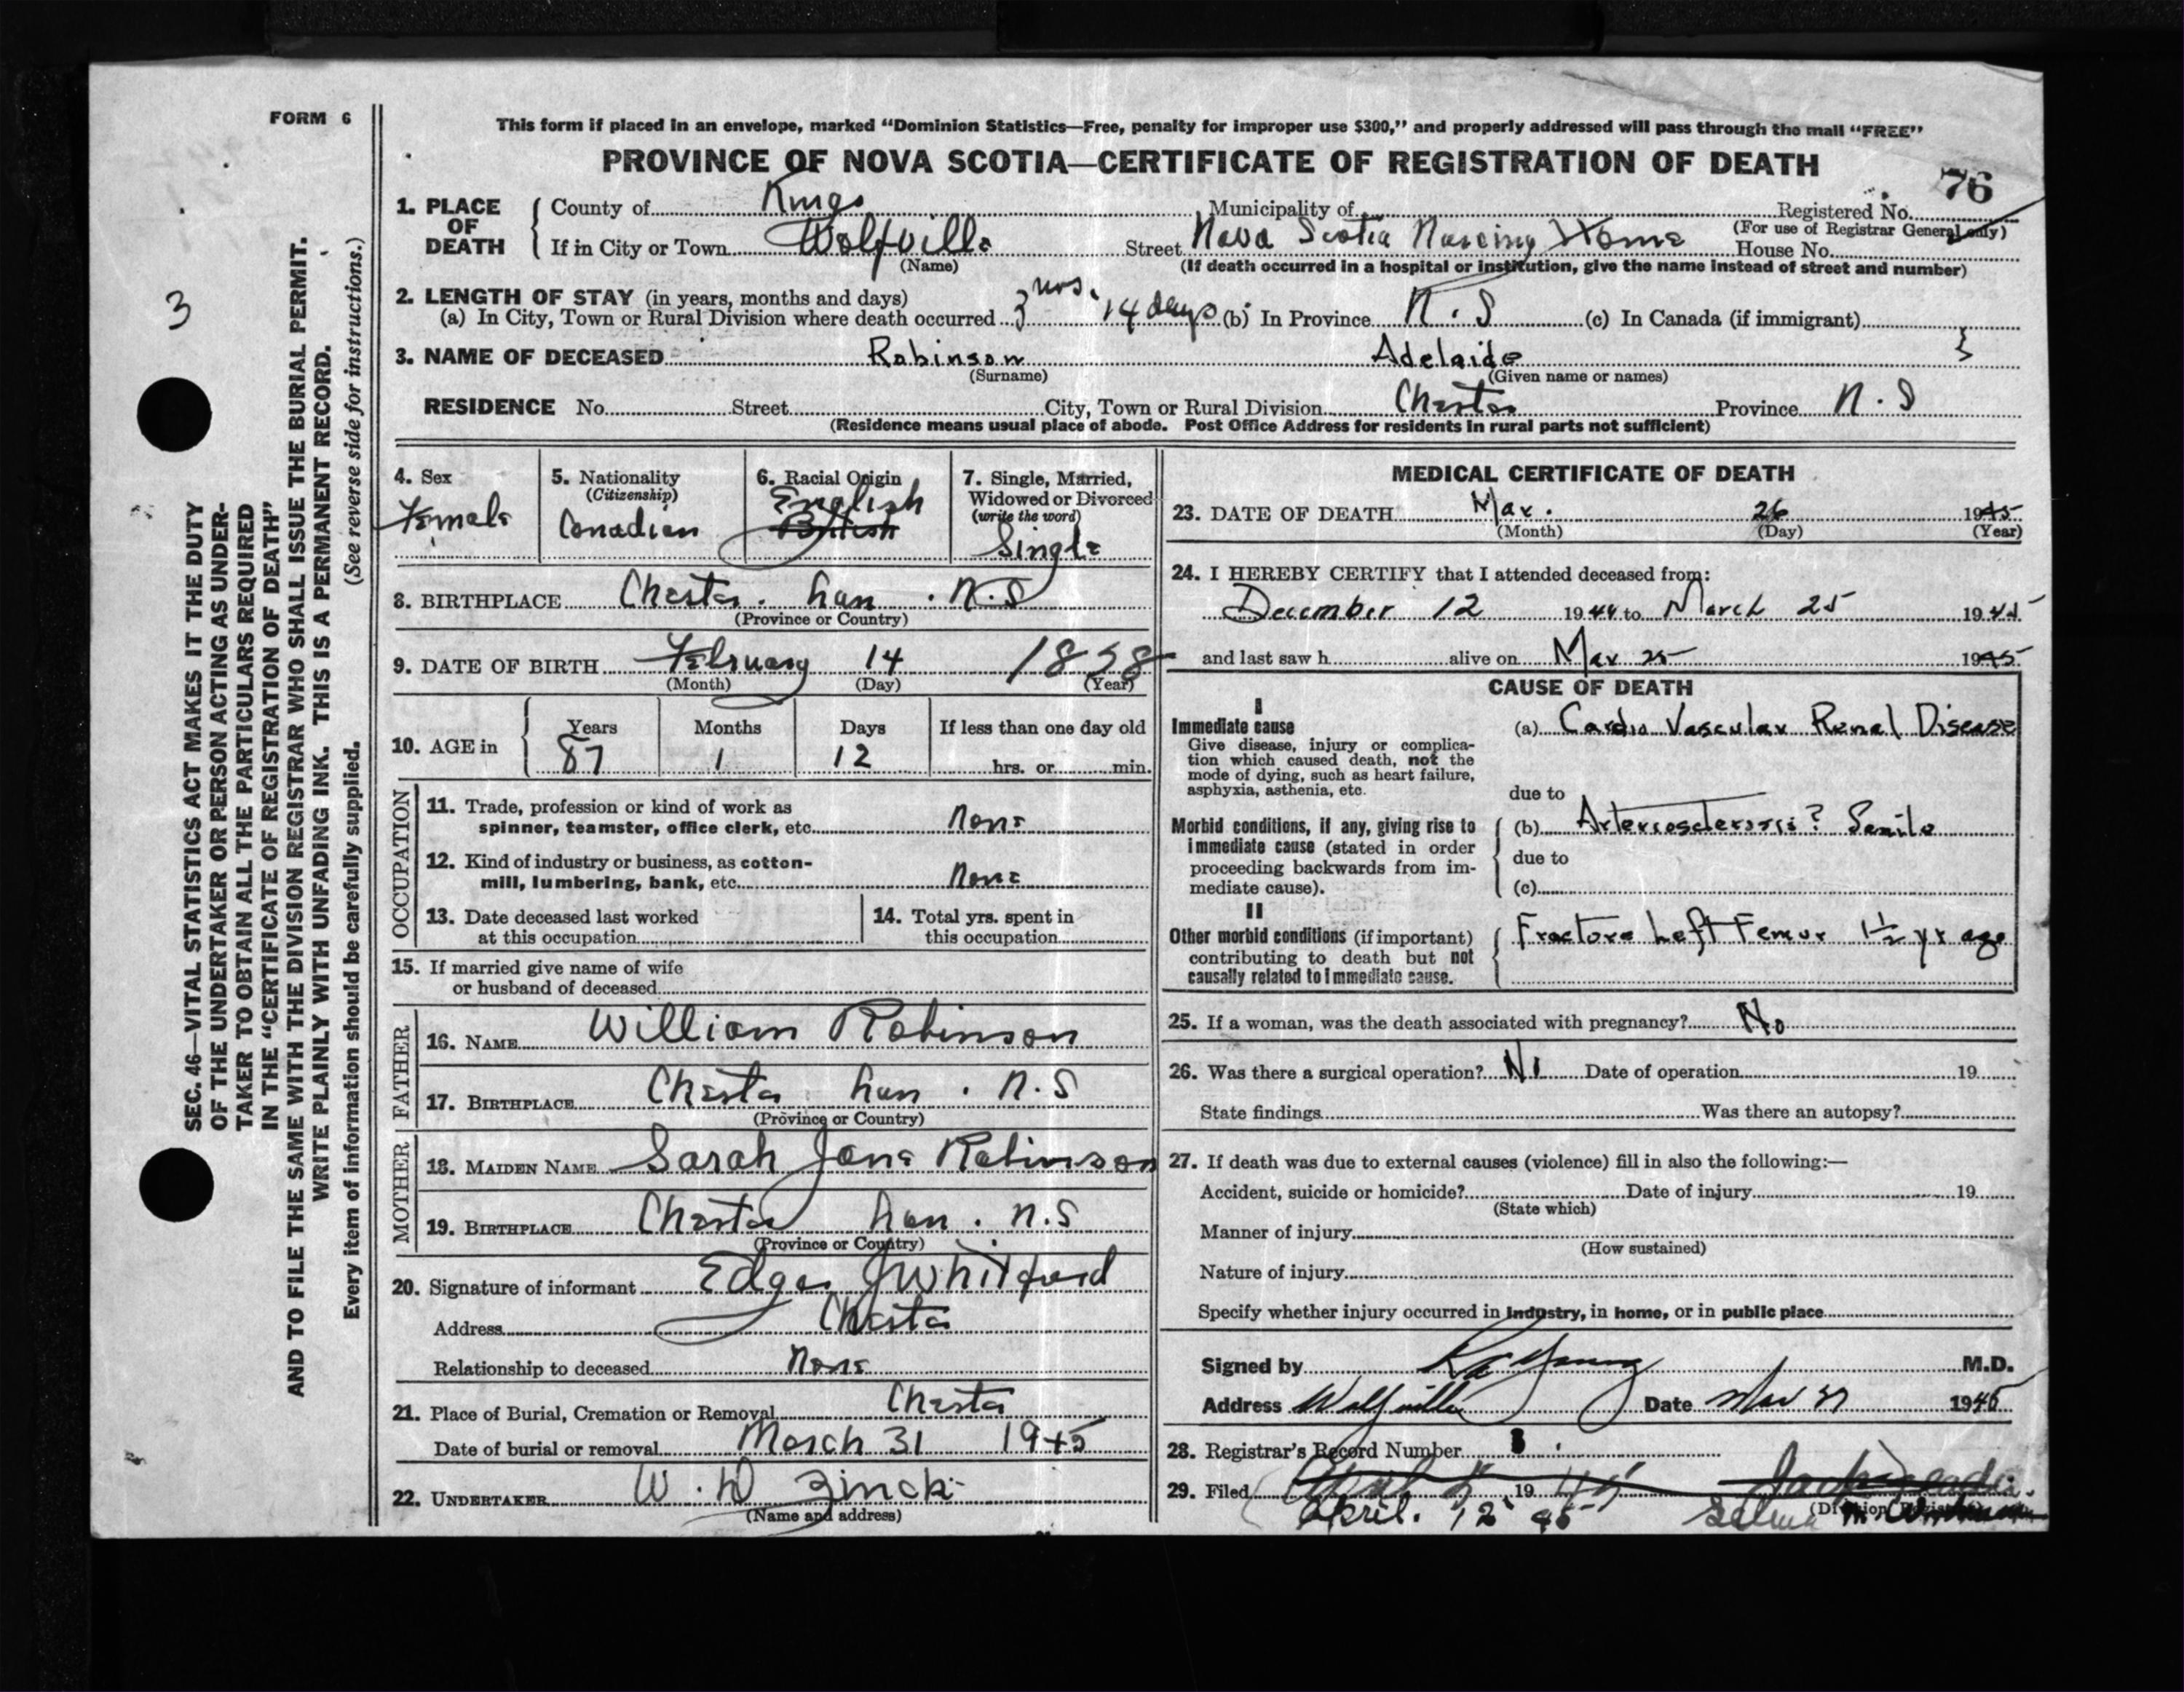 FORM 6
This form if placed in an envelope, marked “Dominion Statistics—Free, penalty for improper use $300,” and properly addressed will pass through the mail “FREE”
PROVINCE OF NOVA SCOTIA—CERTIFICATE OF REGISTRATION OF DEATH
76
1. PLACE OF DEATH
County of Kings Municipality of Registered No.
(For use of Registrar General only)
If in City or Town Wolfville Street Nova Scotia Nursing Home House No.
(Name) (If death occurred in a hospital or institution, give the name instead of street and number)
2. LENGTH OF STAY (in years, months and days)
(a) In City, Town or Rural Division where death occurred 3 mos. 14 days (b) In Province N.S (c) In Canada (if immigrant)
3. NAME OF DECEASED Robinson Adelaide
(Surname) (Given name or names)
RESIDENCE No. Street City, Town or Rural Division Chester Province N.S
(Residence means usual place of abode. Post Office Address for residents in rural parts not sufficient)
4. Sex
Female
5. Nationality
(Citizenship)
Canadian
6. Racial Origin
English
British
7. Single, Married,
Widowed or Divorced
(write the word)
Single
8. BIRTHPLACE Chester. Lun. N.S
(Province or Country)
9. DATE OF BIRTH February 14 1858
(Month) (Day) (Year)
10. AGE in
Years Months Days If less than one day old
87 1 12 hrs. or min.
OCCUPATION
11. Trade, profession or kind of work as
spinner, teamster, office clerk, etc. None
12. Kind of industry or business, as cotton-
mill, lumbering, bank, etc. None
13. Date deceased last worked
at this occupation
14. Total yrs. spent in
this occupation
15. If married give name of wife
or husband of deceased
FATHER
16. NAME William Robinson
17. BIRTHPLACE Chester Lun. N.S
(Province or Country)
MOTHER
18. MAIDEN NAME Sarah Jane Robinson
19. BIRTHPLACE Chester Lun. N.S
(Province or Country)
20. Signature of informant Edgar J Whitford
Address Chester
Relationship to deceased None
21. Place of Burial, Cremation or Removal Chester
Date of burial or removal March 31 1945
22. UNDERTAKER W. W Zinck
(Name and address)
MEDICAL CERTIFICATE OF DEATH
23. DATE OF DEATH Mar. 26 1945
(Month) (Day) (Year)
24. I HEREBY CERTIFY that I attended deceased from:
December 12 1944 to March 25 1945
and last saw h alive on Mar 25 1945
CAUSE OF DEATH
I
Immediate cause
Give disease, injury or complica-
tion which caused death, not the
mode of dying, such as heart failure,
asphyxia, asthenia, etc.
(a) Cardio Vascular Renal Disease
due to
Morbid conditions, if any, giving rise to
immediate cause (stated in order
proceeding backwards from im-
mediate cause).
(b) Arteriosclerosis? Senile
due to
(c)
II
Other morbid conditions (if important)
contributing to death but not
causally related to immediate cause.
Fracture Left Femur 1½ yr ago
25. If a woman, was the death associated with pregnancy? No
26. Was there a surgical operation? No Date of operation 19
State findings Was there an autopsy?
27. If death was due to external causes (violence) fill in also the following:—
Accident, suicide or homicide? Date of injury 19
(State which)
Manner of injury
(How sustained)
Nature of injury
Specify whether injury occurred in industry, in home, or in public place
Signed by Young M.D.
Address Wolfville Date Mar 1945
28. Registrar's Record Number
29. Filed 19 45
(Division Registrar)
April. 12 45 Selma
3
SEC. 46—VITAL STATISTICS ACT MAKES IT THE DUTY
OF THE UNDERTAKER OR PERSON ACTING AS UNDER-
TAKER TO OBTAIN ALL THE PARTICULARS REQUIRED
IN THE “CERTIFICATE OF REGISTRATION OF DEATH”
AND TO FILE THE SAME WITH THE DIVISION REGISTRAR WHO SHALL ISSUE THE BURIAL PERMIT.
WRITE PLAINLY WITH UNFADING INK. THIS IS A PERMANENT RECORD.
Every item of information should be carefully supplied. (See reverse side for instructions.)